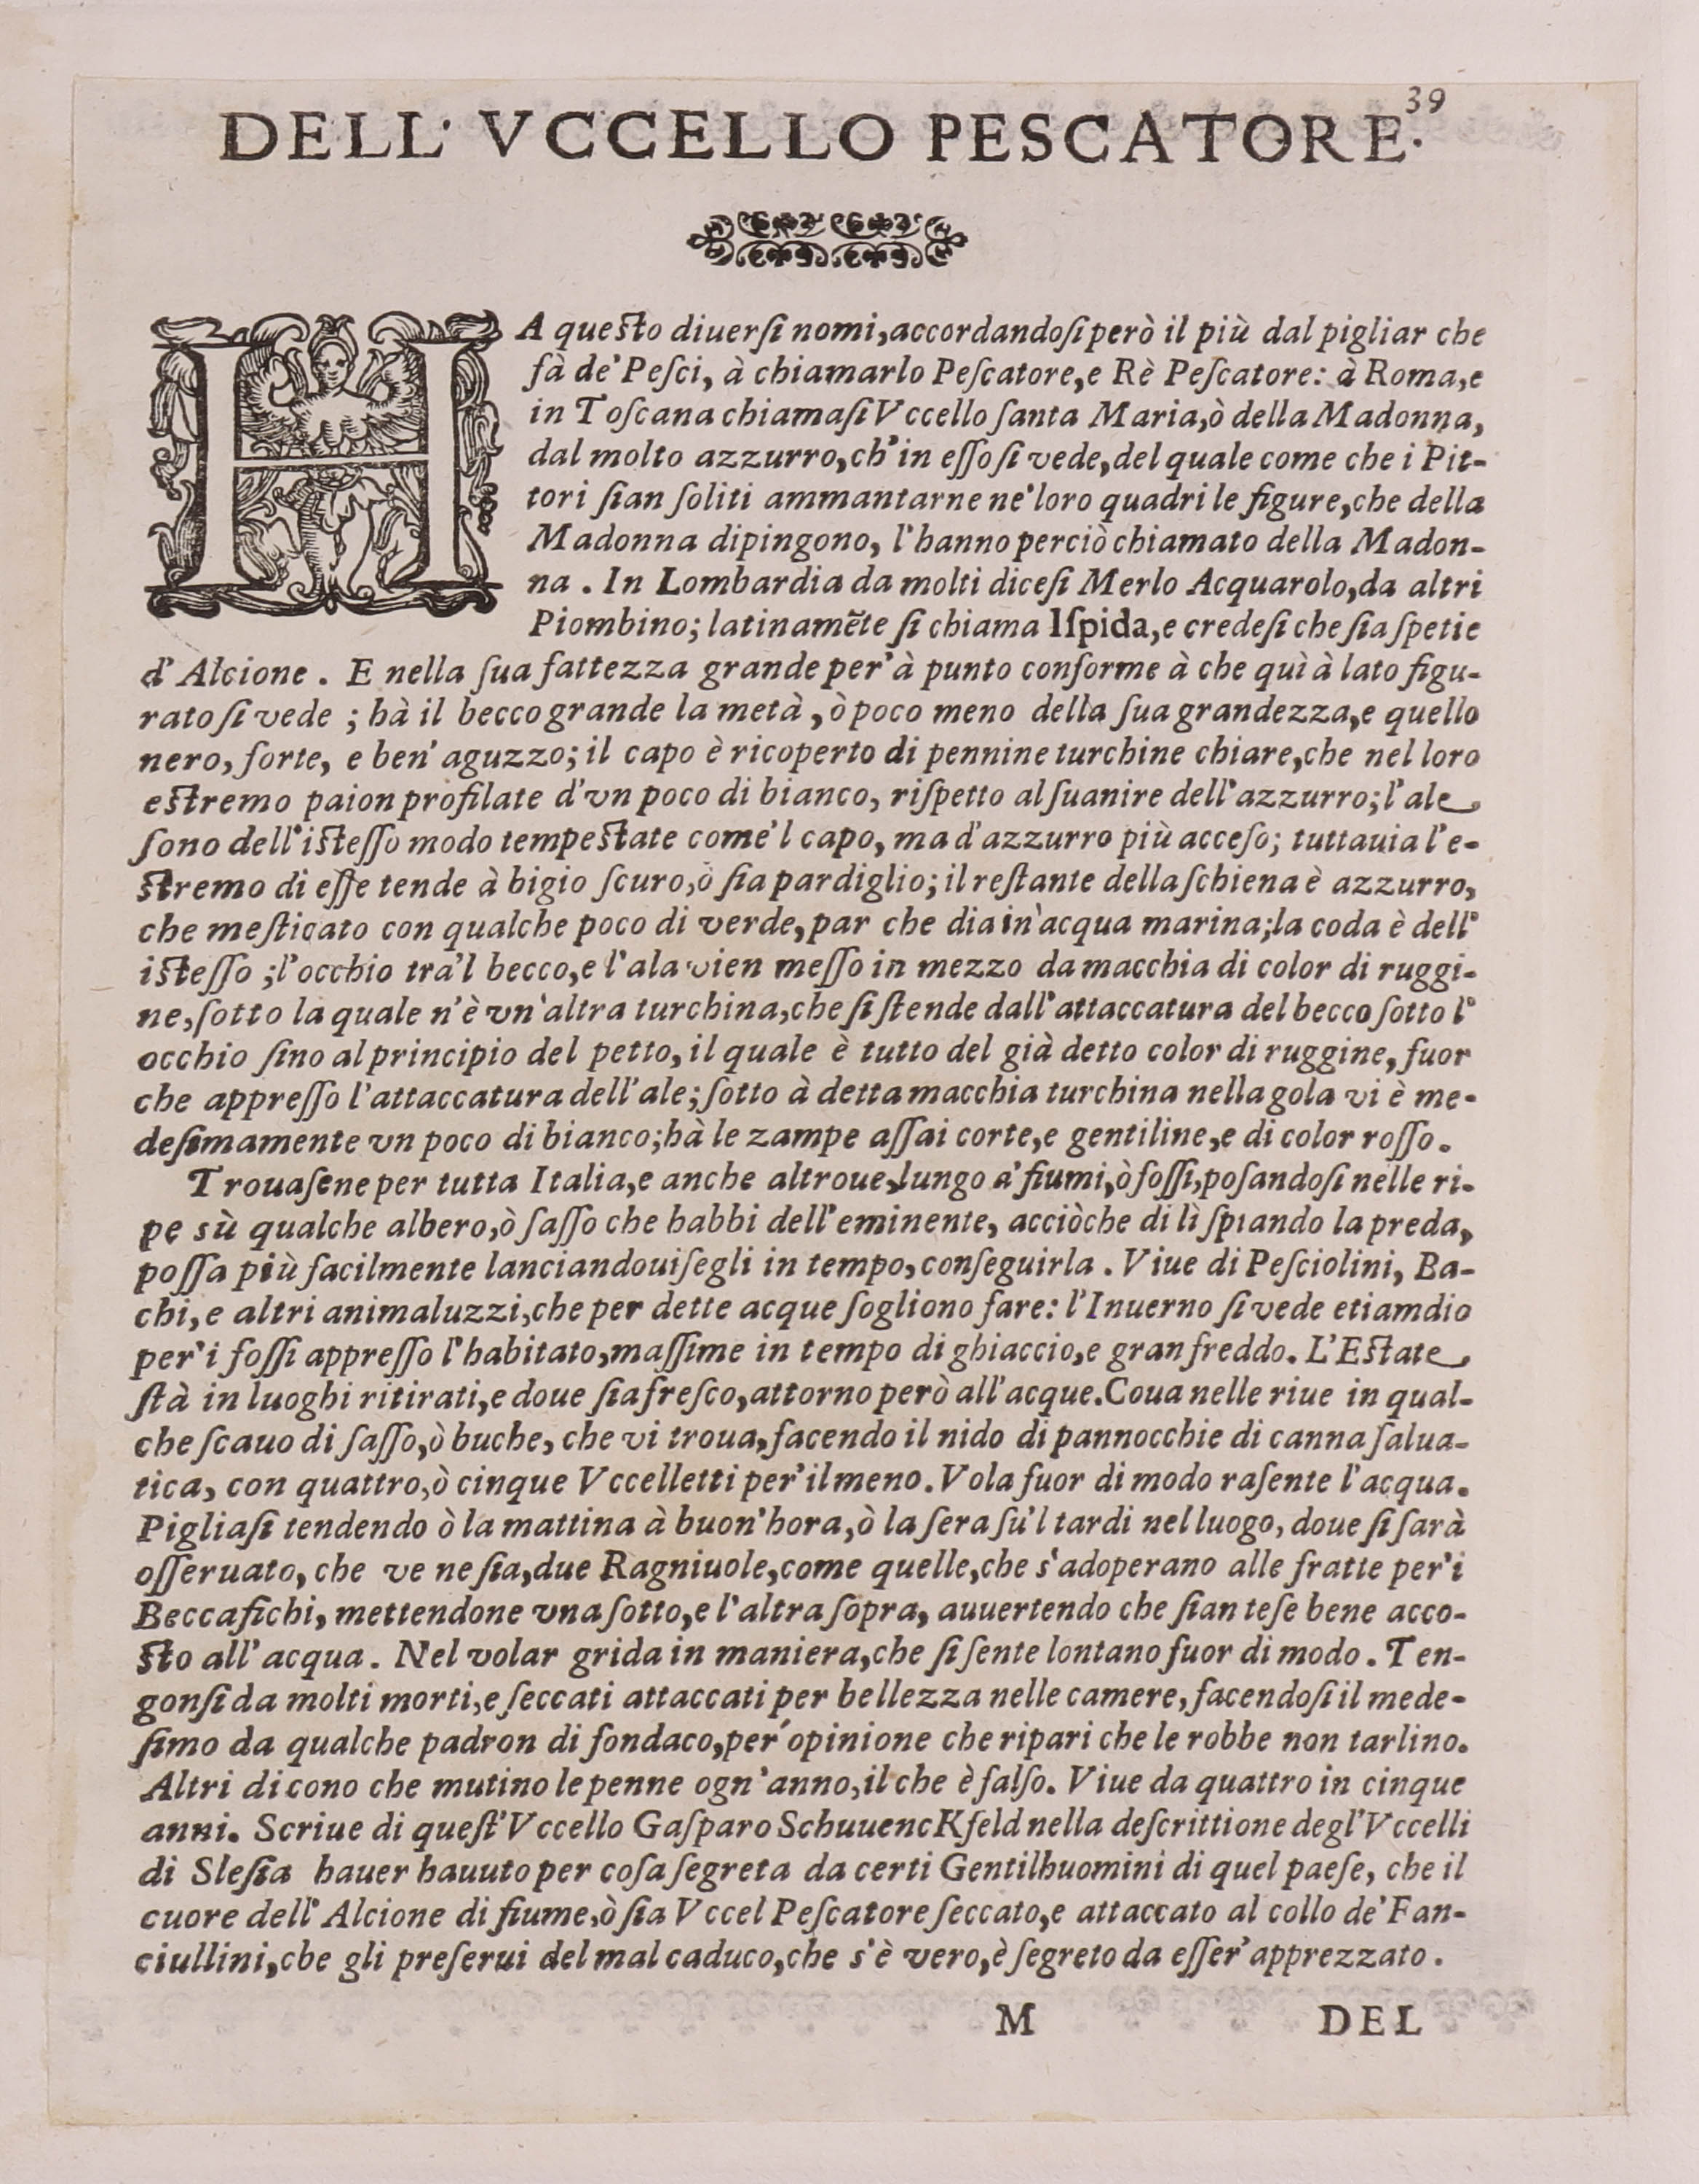 39
DELL' VCCELLO PESCATORE.
HA queſto diuerſi nomi, accordandoſi però il più dal pigliar che
fà de' Peſci, à chiamarlo Peſcatore, e Rè Peſcatore: à Roma, e
in Toſcana chiamaſi Vccello ſanta Maria, ò della Madonna,
dal molto azzurro, ch'in eſſo ſi vede, del quale come che i Pit-
tori ſian ſoliti ammantarne ne' loro quadri le figure, che della
Madonna dipingono, l'hanno perciò chiamato della Madon-
na. In Lombardia da molti diceſi Merlo Acquarolo, da altri
Piombino; latinamẽte ſi chiama Iſpida, e credeſi che ſia ſpetie
d'Alcione. E nella ſua fattezza grande per' à punto conforme à che quì à lato figu-
rato ſi vede; hà il becco grande la metà, ò poco meno della ſua grandezza, e quello
nero, forte, e ben' aguzzo; il capo è ricoperto di pennine turchine chiare, che nel loro
eſtremo paion profilate d'vn poco di bianco, riſpetto al ſuanire dell'azzurro; l'ale
ſono dell'iſteſſo modo tempeſtate come'l capo, ma d'azzurro più acceſo; tuttauia l'e-
ſtremo di eſſe tende à bigio ſcuro, ò ſia pardiglio; il reſtante della ſchiena è azzurro,
che meſticato con qualche poco di verde, par che dia in'acqua marina; la coda è dell'
iſteſſo; l'occhio tra'l becco, e l'ala vien meſſo in mezzo da macchia di color di ruggi-
ne, ſotto la quale n'è vn'altra turchina, che ſi ſtende dall'attaccatura del becco ſotto l'
occhio ſino al principio del petto, il quale è tutto del già detto color di ruggine, fuor
che appreſſo l'attaccatura dell'ale; ſotto à detta macchia turchina nella gola vi è me-
deſimamente vn poco di bianco; hà le zampe aſſai corte, e gentiline, e di color roſſo.
Trouaſene per tutta Italia, e anche altroue, lungo a' fiumi, ò foſſi, poſandoſi nelle ri-
pe sù qualche albero, ò ſaſſo che habbi dell'eminente, acciòche di lì ſpiando la preda,
poſſa più facilmente lanciandouiſegli in tempo, conſeguirla. Viue di Peſciolini, Ba-
chi, e altri animaluzzi, che per dette acque ſogliono fare: l'Inuerno ſi vede etiamdio
per'i foſſi appreſſo l'habitato, maſſime in tempo di ghiaccio, e gran freddo. L'Eſtate
ſtà in luoghi ritirati, e doue ſia freſco, attorno però all'acque. Coua nelle riue in qual-
che ſcauo di ſaſſo, ò buche, che vi troua, facendo il nido di pannocchie di canna ſalua-
tica, con quattro, ò cinque Vccelletti per'il meno. Vola fuor di modo raſente l'acqua.
Pigliaſi tendendo ò la mattina à buon'hora, ò la ſera ſu'l tardi nel luogo, doue ſi ſarà
oſſeruato, che ve ne ſia, due Ragniuole, come quelle, che s'adoperano alle fratte per'i
Beccafichi, mettendone vna ſotto, e l'altra ſopra, auuertendo che ſian teſe bene acco-
ſto all'acqua. Nel volar grida in maniera, che ſi ſente lontano fuor di modo. Ten-
gonſi da molti morti, e ſeccati attaccati per bellezza nelle camere, facendoſi il mede-
ſimo da qualche padron di fondaco, per' opinione che ripari che le robbe non tarlino.
Altri dicono che mutino le penne ogn'anno, il che è falſo. Viue da quattro in cinque
anni. Scriue di queſt'Vccello Gaſparo SchuuencKfeld nella deſcrittione degl'Vccelli
di Sleſia hauer hauuto per coſa ſegreta da certi Gentilhuomini di quel paeſe, che il
cuore dell'Alcione di fiume, ò ſia Vccel Peſcatore ſeccato, e attaccato al collo de' Fan-
ciullini, che gli preſerui del mal caduco, che s'è vero, è ſegreto da eſſer' apprezzato.
M DEL